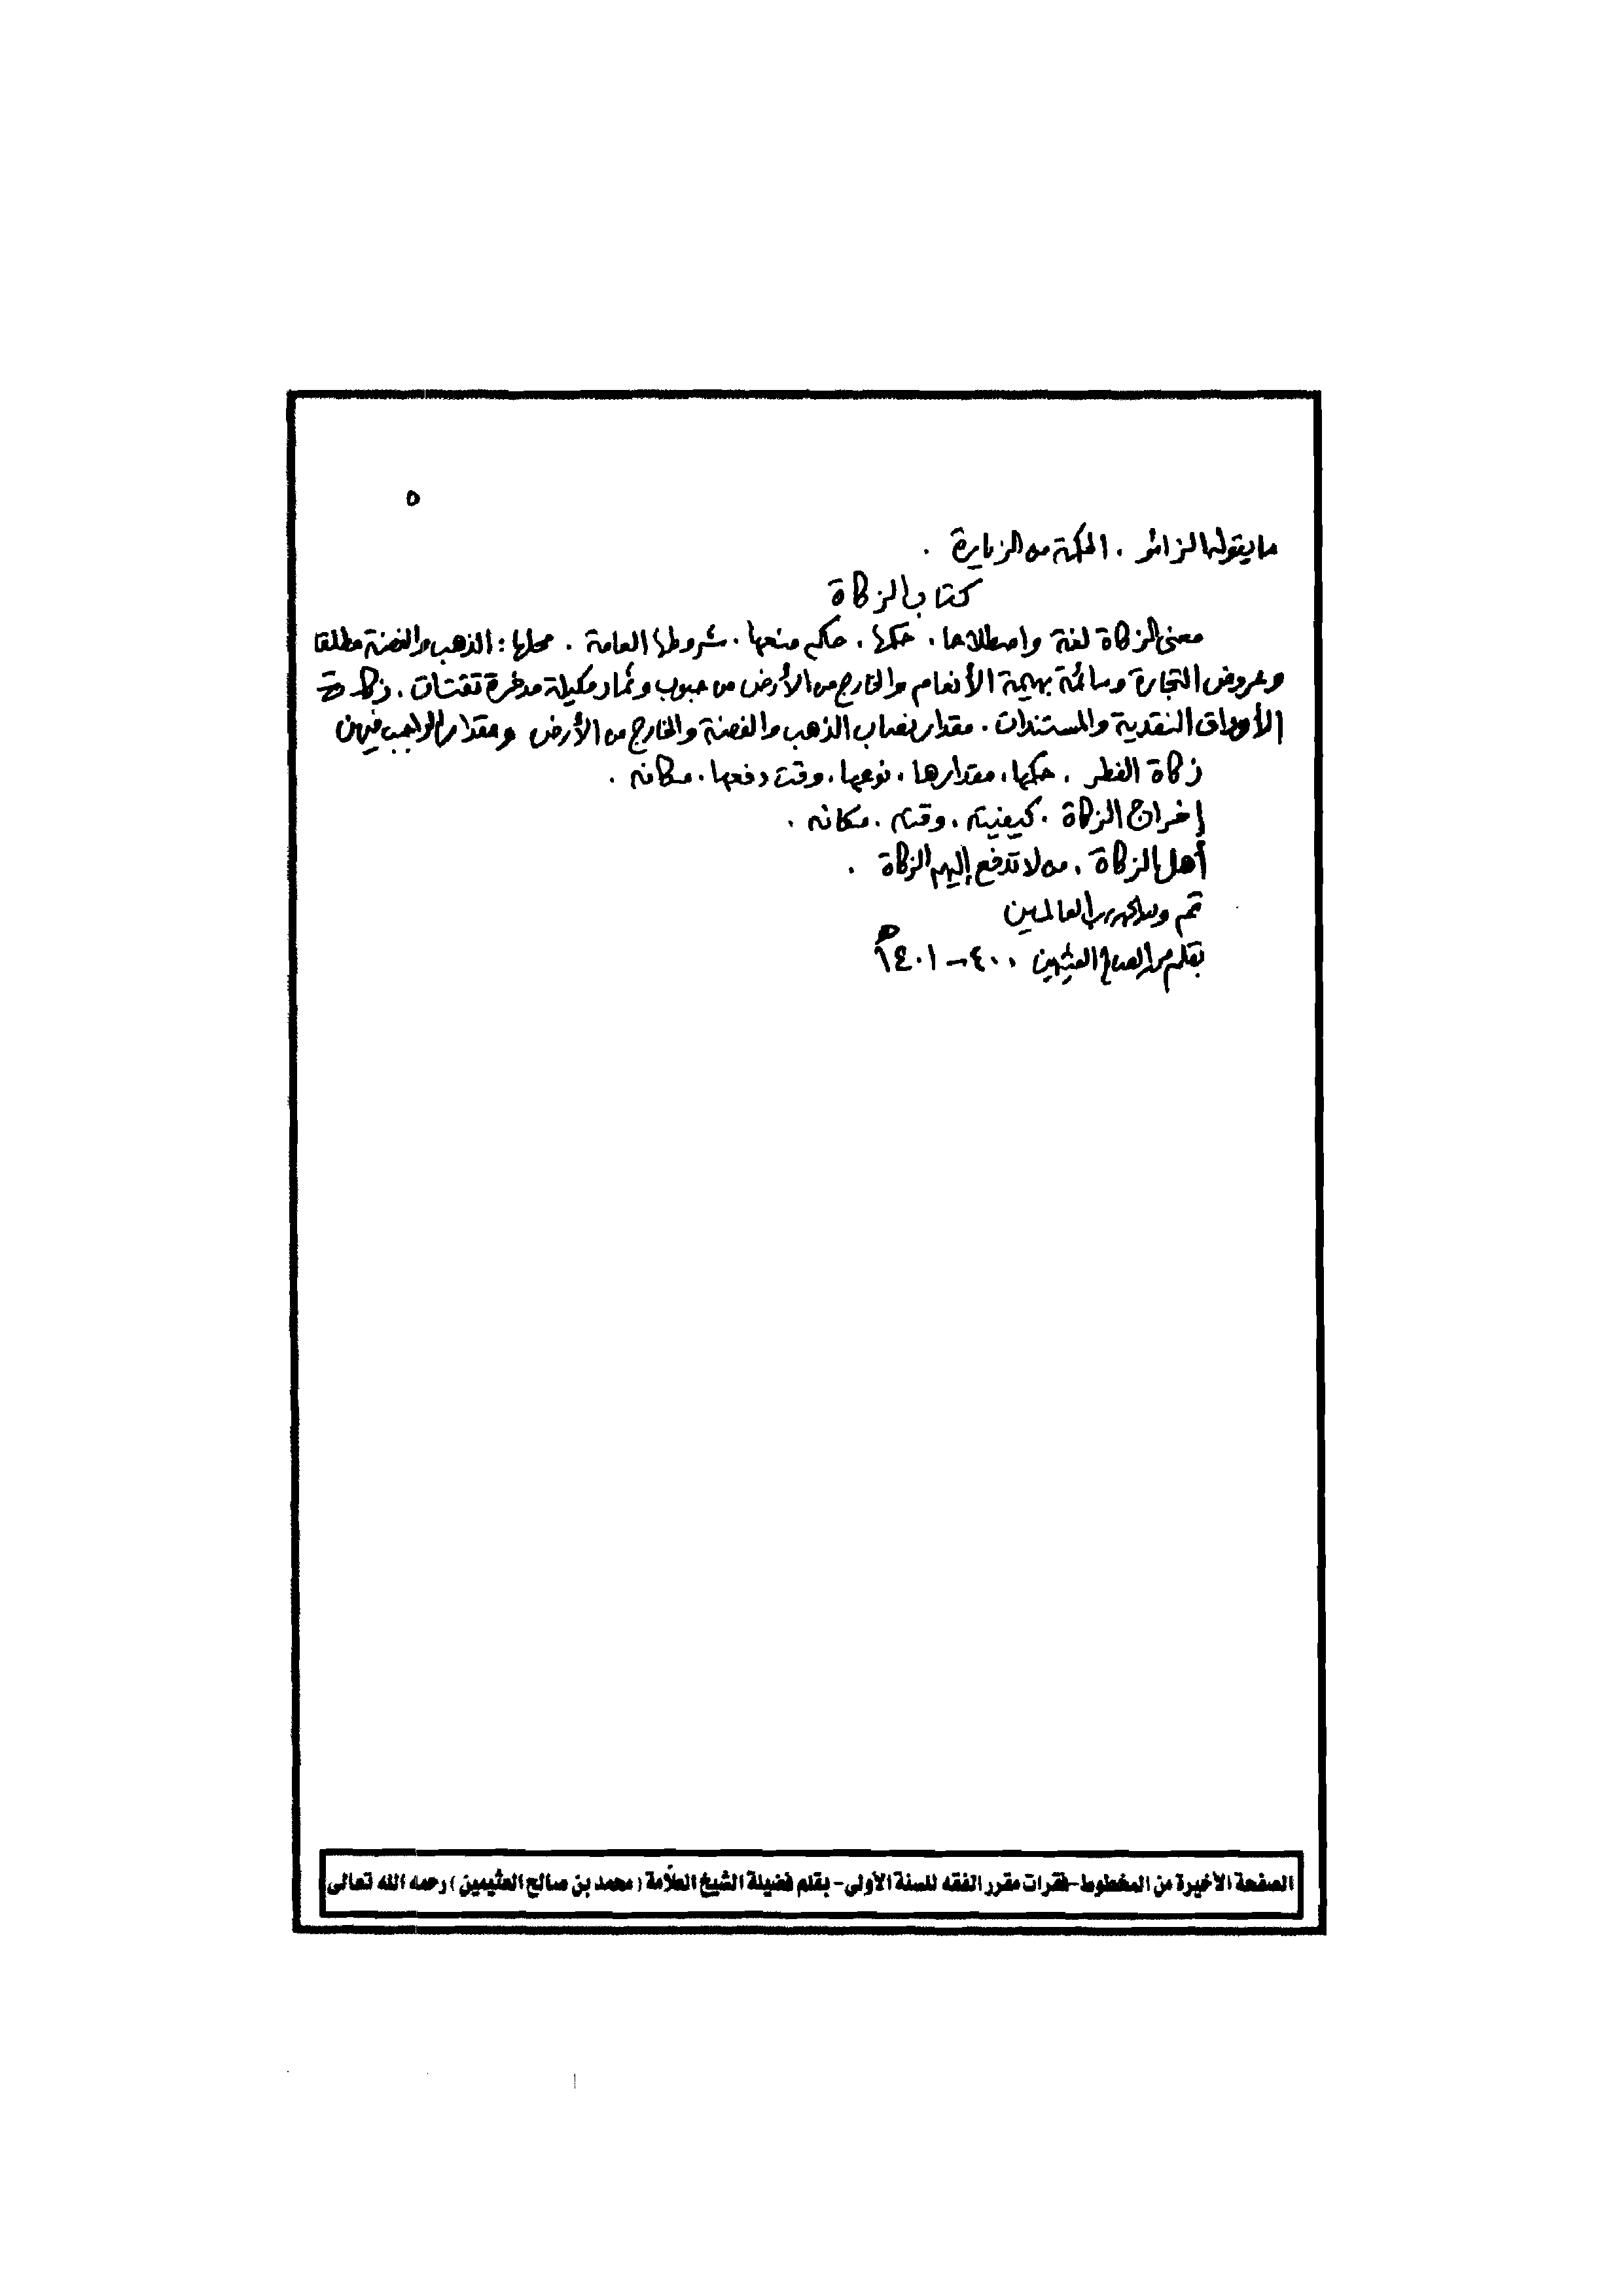 ٥
ما يقوله الزائر . الحكمة من الزيارة .
كتاب الزكاة
معنى الزكاة لغة واصطلاحا . حكمها . حكم منعها . شروطها العامة . محلها : الذهب والفضة مطلقا
وعروض التجارة وسائمة بهيمة الأنعام والخارج من الأرض من حبوب وثمار مكيلة مدخرة تقتات . زكاة
الأوراق النقدية والمستندات . مقدار نصاب الذهب والفضة والخارج من الأرض ومقدار الواجب فيهن
زكاة الفطر . حكمها . مقدارها . نوعها . وقت دفعها . مكانه .
إخراج الزكاة . كيفيته . وقته . مكانه .
أهل الزكاة . من لا تدفع إليهم الزكاة .
تم ولله الحمد رب العالمين
بقلم محمد الصالح العثيمين ١٤٠١-٤٠٠هـ
الصفحة الأخيرة من المخطوط-فقرات مقرر الفقه للسنة الأولى- بقلم فضيلة الشيخ العلّامة ( محمد بن صالح العثيمين ) رحمه الله تعالى